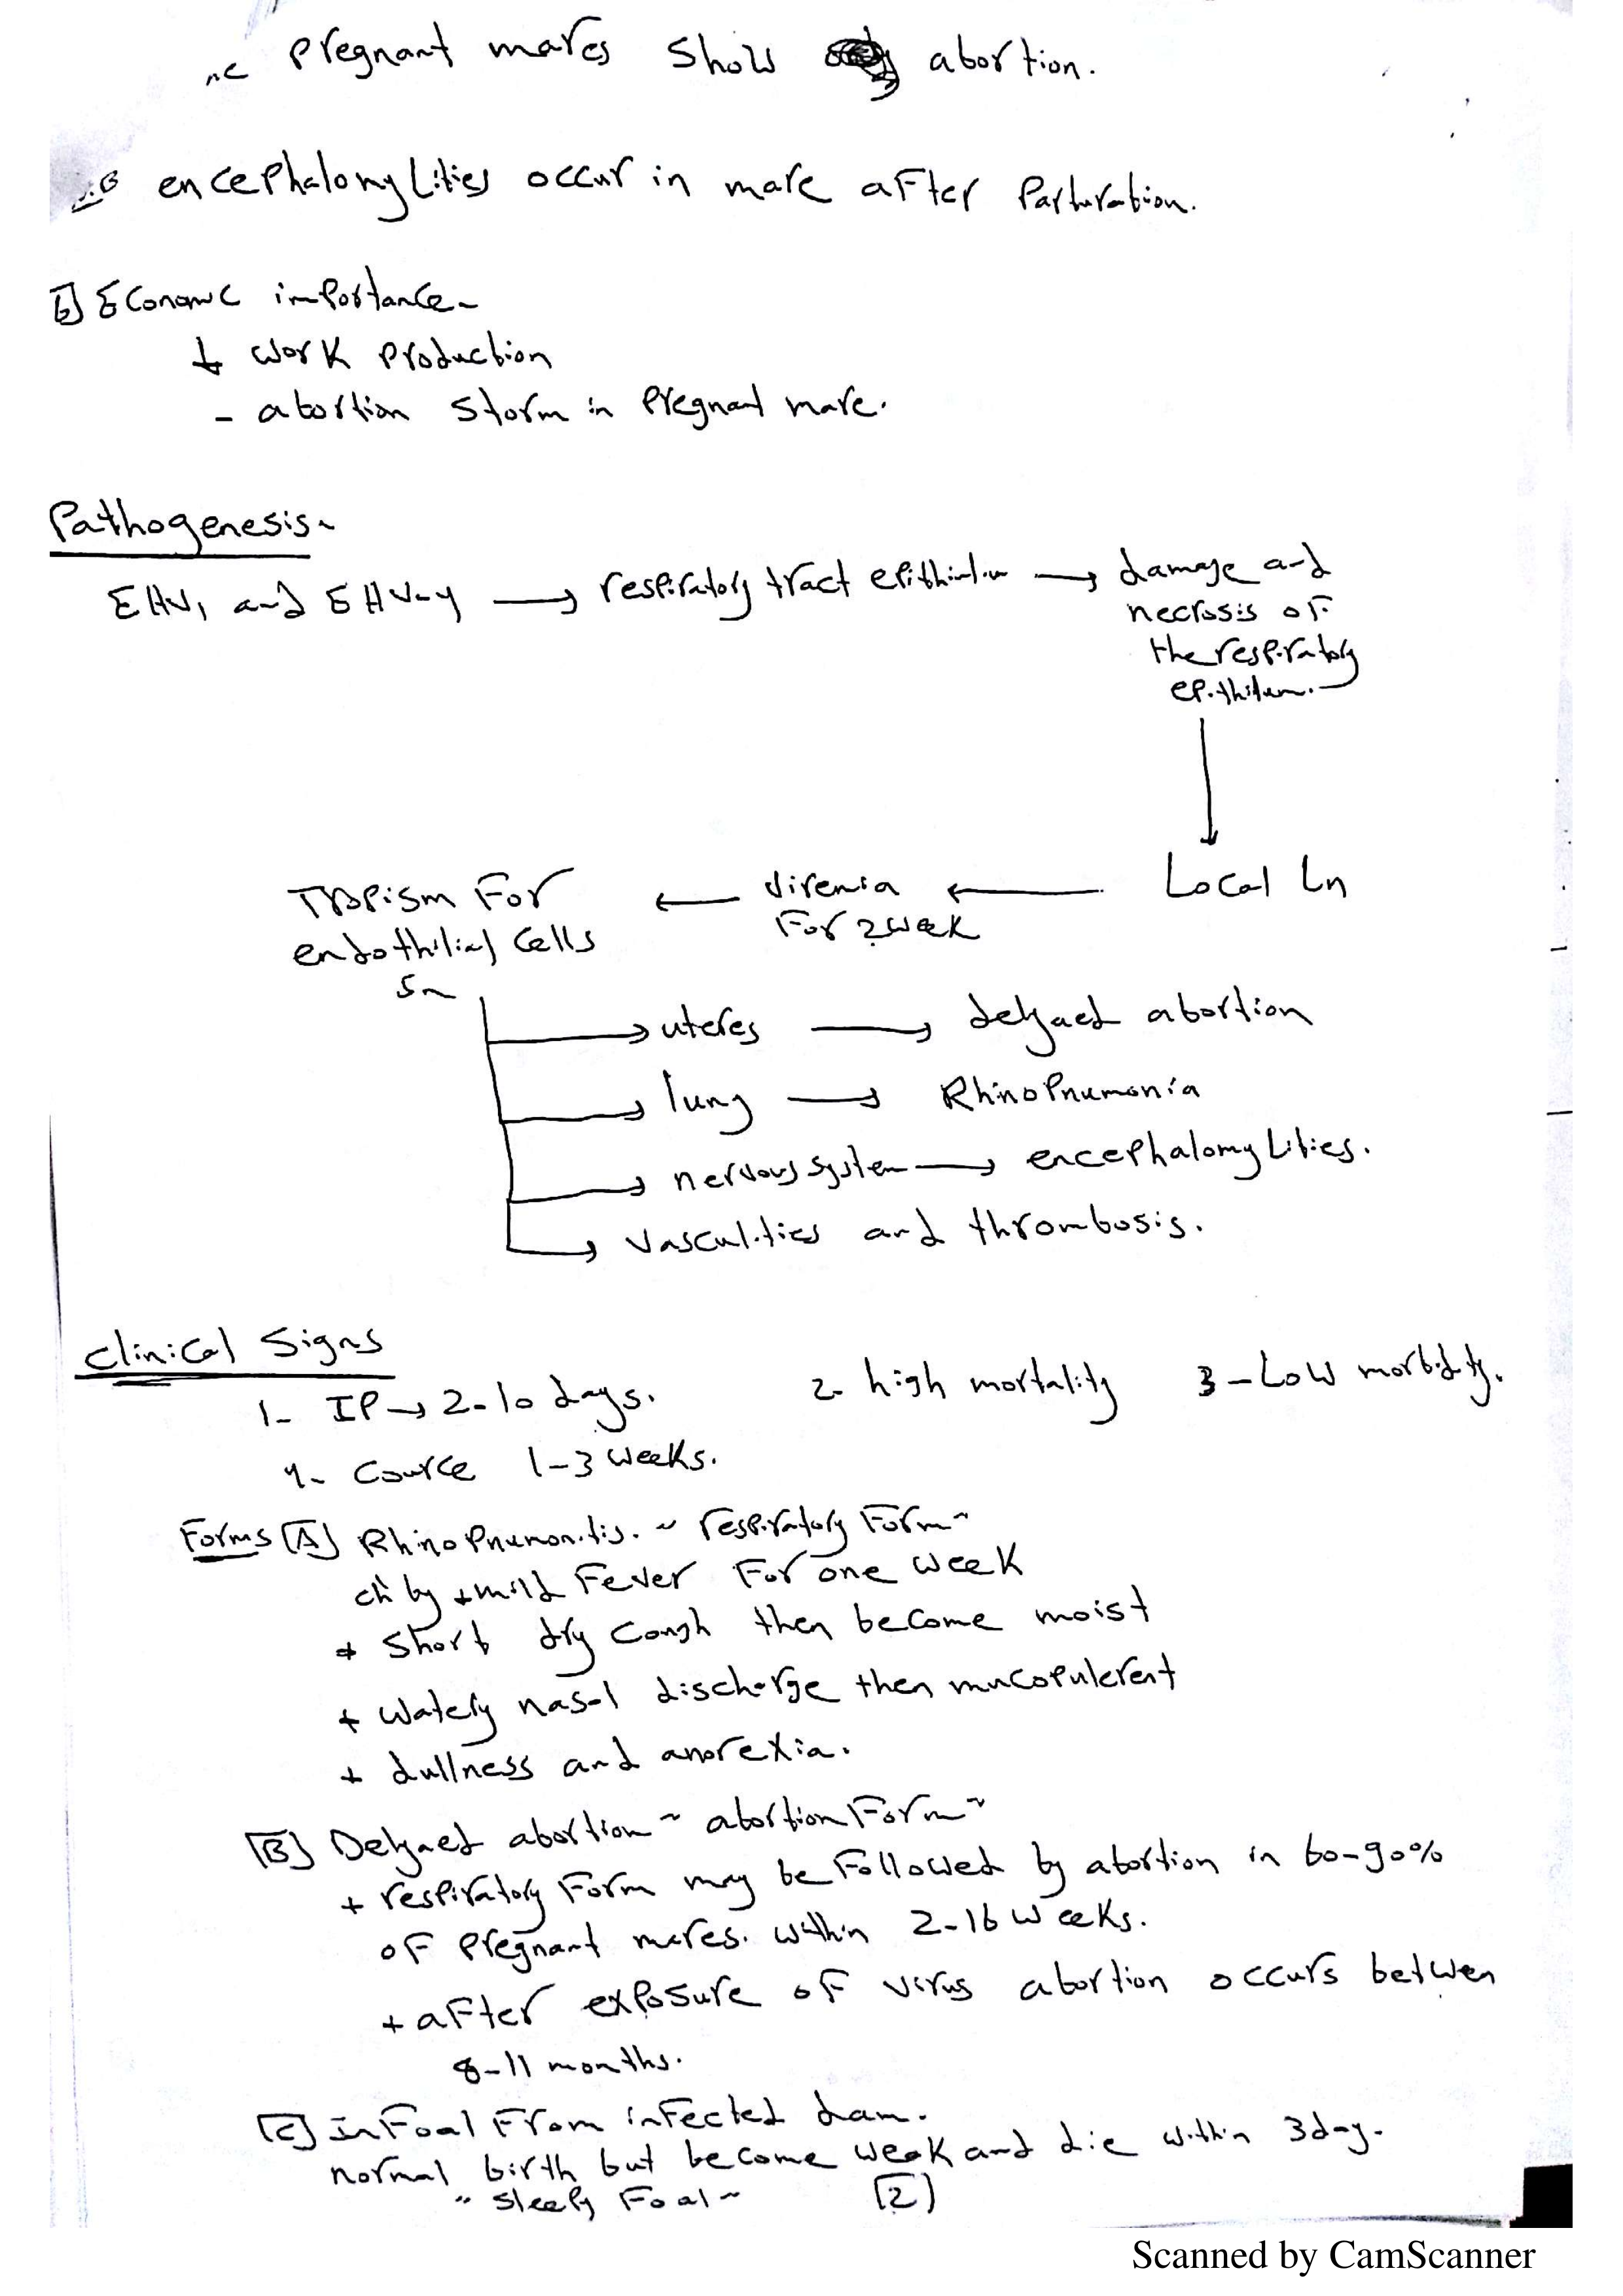 Pregnant mares show abortion.
encephalomylities occur in mare after Parturation.
Economic importance
↓ work production
- abortion storm in Pregnant mare.
Pathogenesis
EHV1 and EHV-4 → respiratory tract epithielum → damage and
necrosis of
the respiratory
epithilum.
Local Ln
← viremia ←
For 2 week
Tropism For
endothilial cells
→ uteres → delyaed abortion
→ lung → RhinoPnumonia
→ nervous system → encephalomylities.
→ vasculities and thrombosis.
Clinical Signs
1- IP → 2-10 days. 2- high mortality 3- Low morbidity.
4- Cource 1-3 weeks.
Forms [A] RhinoPnumonitis. ~ respiratory Form ~
ch by + mild Fever For one week
+ Short dry Cough then become moist
+ watery nasal discharge then mucopulerent
+ dullness and anorexia.
[B] Delyaed abortion ~ abortion Form ~
+ respiratory Form may be Followed by abortion in 60-90%
of Pregnant mares. within 2-16 weeks.
+ aFter exposure of virus abortion occurs betwen
8-11 months.
[C] In Foal From infected dam.
normal birth but become weak and die within 3 day.
" Sleepy Foal "
[2]
Scanned by CamScanner